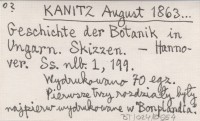 03 KANITZ August 1863...
Geschichte der Botanik in
Ungarn. Skizzen. — Hanno-
ver. Ss. nlb 1, 199.
Wydrukowano 70 egz.
Pierwsze trzy rozdziały były
najpierw wydrukowane w Bonplandia.